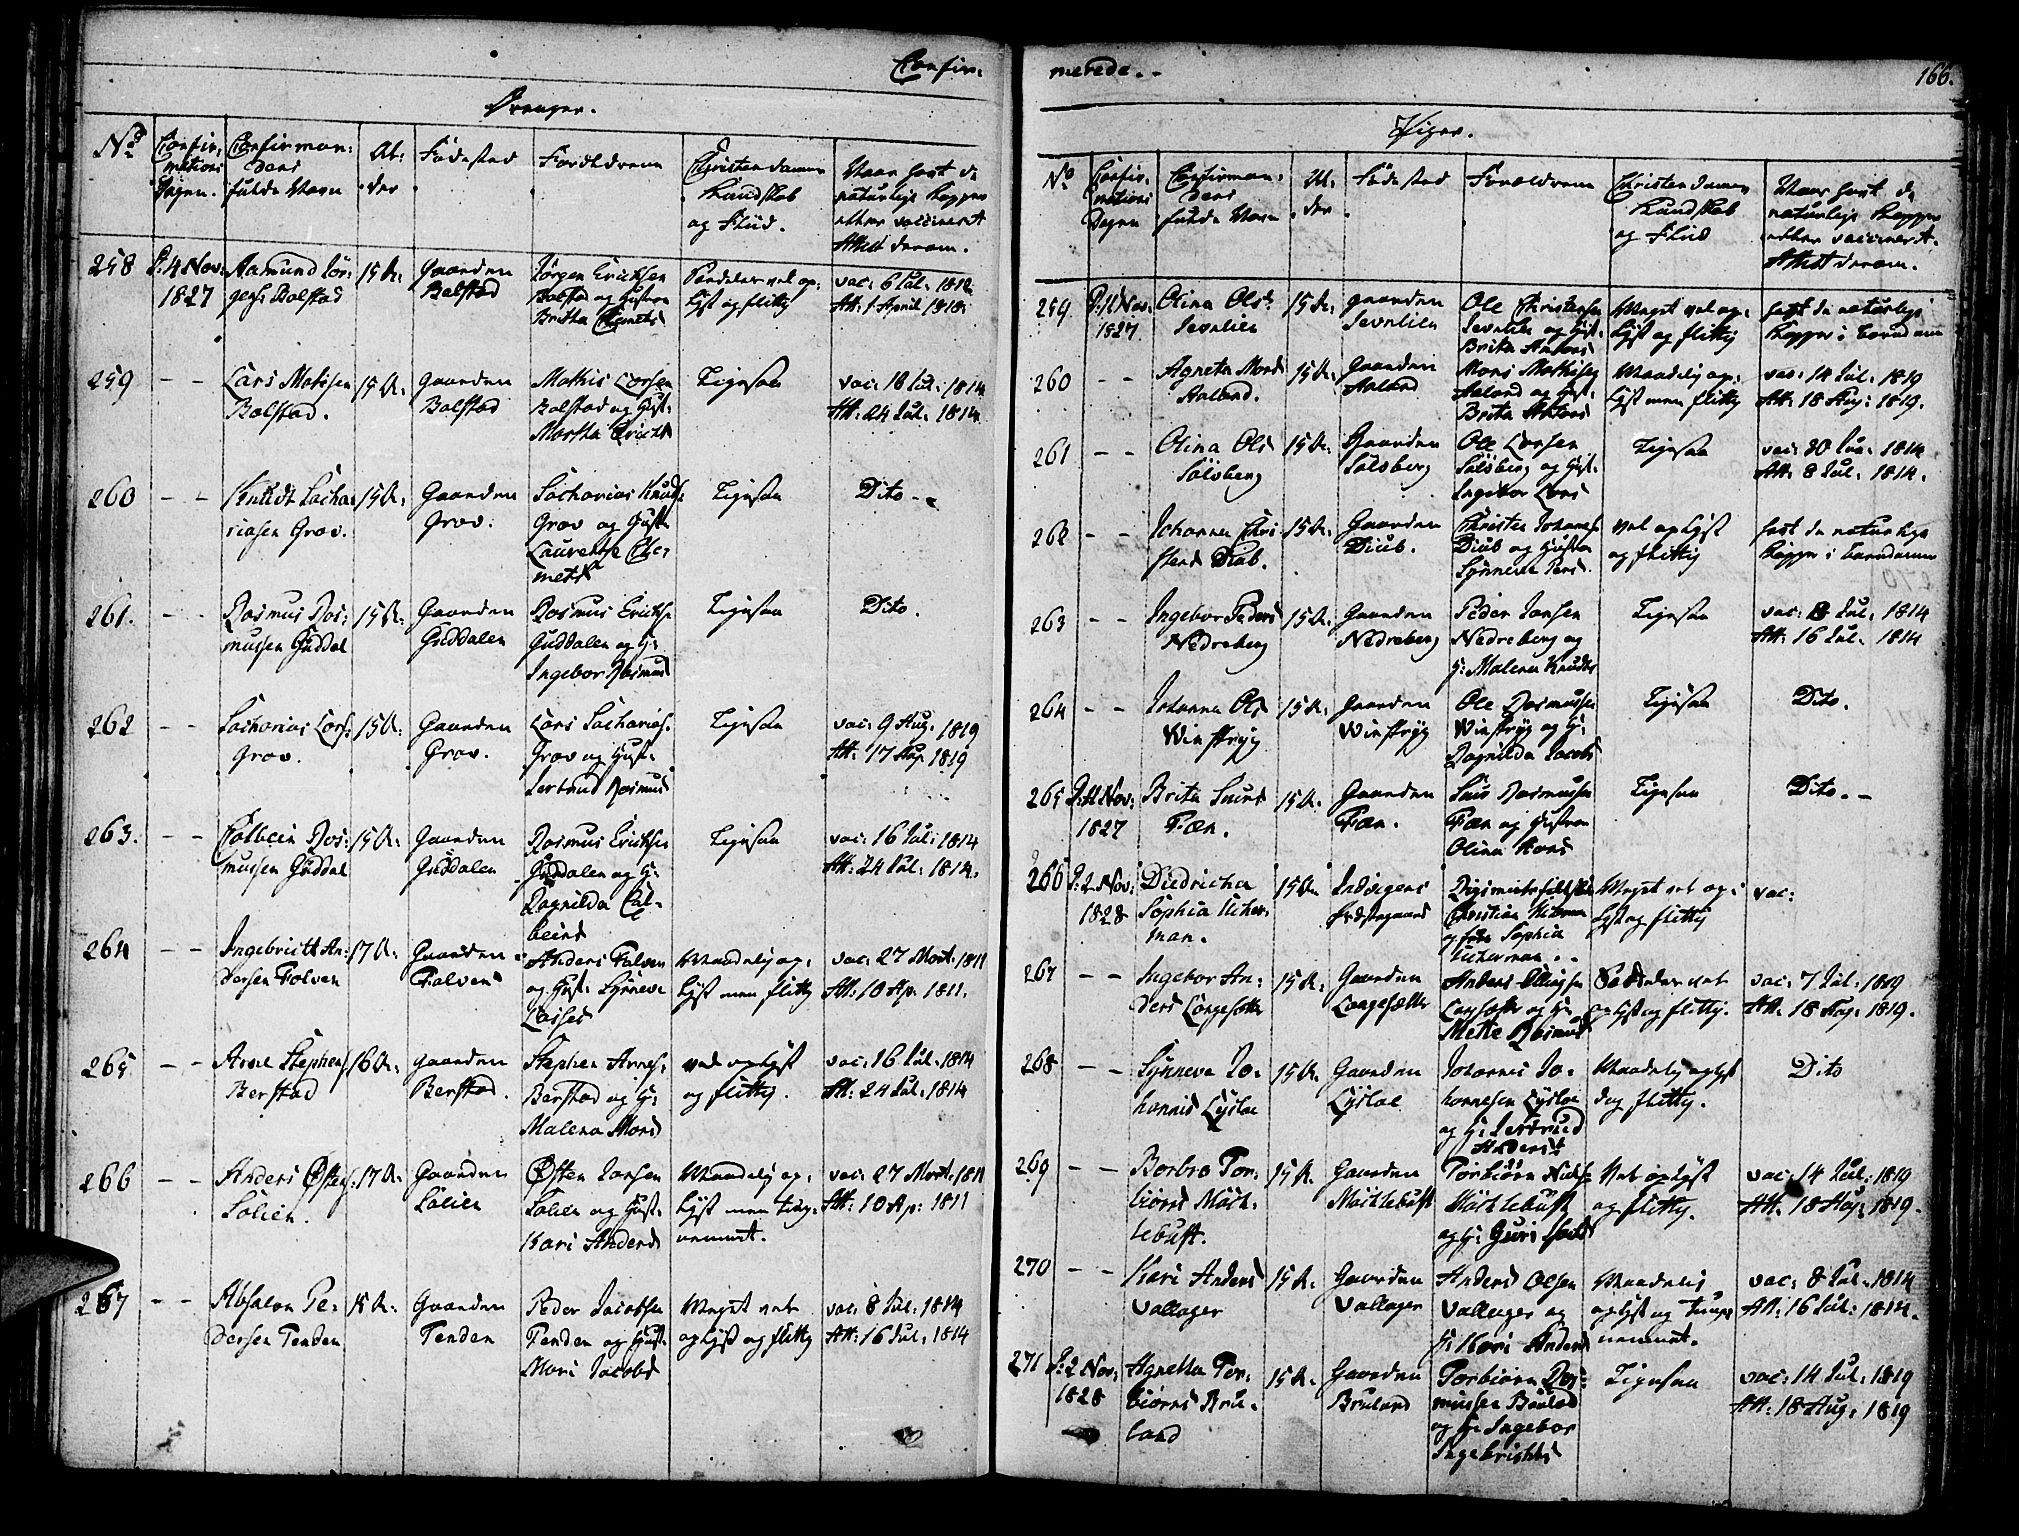 Confir-
Drenger.
No
Confir-
mations
Dagen.
Confirman-
dens
fulde Navn
Al-
der
Födested
Forældrene
Christendoms
Kundskab
og Flid.
Naar havt de
naturlige Kopper
eller vaccineret
Attest derom.
258
D: 4 Nov:
1827
Aamund Jör-
gens: Bolstad
15 A:
Gaarden
Bolstad
Jörgen Ericksen
Bolstad og Hustru
Britha Clemets
Særdeles vel op-
lyst og flittig
vac: 6 Jul: 1812
Att: 1 April 1818
259
- -
Lars Mathisen
Bolstad.
15 A:
Gaarden
Bolstad
Mathis Larsen
Bolstad og Hust:
Martha Ericks
Ligesaa
vac: 18 Jul: 1814
Att: 24 Jul: 1814
260
- -
Knudt Zacha-
riasen Grov.
15 A:
Gaarden
Grov.
Zacharias Knuds:
Grov og Hust:
Laurentse Cle-
mets
Ligesaa
Dito -
261.
- -
Rasmus Ras-
mussen Guddal
15 A:
Gaarden
Guddalen
Rasmus Ericks:
Guddalen og H:
Ingebor Rasmus
Ligesaa
Dito.
262
- -
Zacharias Lars:
Grov.
15 A:
Gaarden
Grov.
Lars Zacharias:
Grov og Hust:
Gertrud Rasmus
Ligesaa
vac: 9 Aug: 1819
Att: 17 Aug 1819
263.
- -
Colbein Ras-
mussen Guddal
15 A:
Gaarden
Guddalen
Rasmus Ericks:
Guddalen og H:
Ragnilda Col-
beins
Ligesaa
vac: 16 Jul: 1814
Att: 24 Jul: 1814.
264
- -
Ingebrictt An-
dersen Folven
17 A:
Gaarden
Folven
Anders Folven
og Hust: Synneve
Lasses
Maadelig op-
lyst men flittig
vac: 27 Mart: 1811
Att: 10 Ap: 1811.
265
- -
Arne Stephens:
Berstad
16 A:
Gaarden
Berstad.
Stephen Arnes:
Berstad og H:
Malena Mons
vel oplyst
og flittig.
vac: 16 Jul: 1814
Att: 24 Jul: 1814
266
- -
Anders Østens:
Solien.
17 A:
Gaarden
Solien
Østen Larsen
Solien og Hust:
Kari Anders
Maadelig op-
lyst men tung-
nemmet.
vac: 27 Mart: 1811
Att: 10 Ap: 1811
267
- -
Absalon Pe-
dersen Tenden
15 A:
Gaarden
Tenden
Peder Jacobsen
Tenden og Hust:
Mari Jacobs
Meget vel
oplyst og flittig
vac: 8 Jul: 1814
Att: 16 Jul: 1814
merede. -
166.
Piger.
No
Confir-
mations
Dagen
Confirman-
dens
fulde Navn
Al-
der
Födested
Forældrene
Christendoms
Kundskab
og Flid
Naar havt de
naturlige Kopper
eller vaccineret.
Attest derom.
259
D: 11 Nov:
1827
Olina Ols:
Sevalien
15 A:
Gaarden
Sevalien
Ole Christensen
Sevalien og Hust:
Brita Anders
Meget vel op-
lyst og flittig
havt de naturlige
Kopper i Barndom
260
- -
Agneta Mons
Aaland.
15 A:
Gaarden
Aaland
Mons Mathisen
Aaland og Hust:
Brita Anders
Maadelig op-
lyst men flittig
vac: 14 Jul: 1819
Att: 18 Aug: 1819.
261
- -
Olina Ols
Solsberg
15 A:
Gaarden
Solsberg
Ole Larsen
Solsberg og Hust:
Ingebor Lars
Ligesaa
vac: 30 Jun: 1814
Att: 8 Jul: 1814.
262
- -
Johanna Chri-
stens Diub.
15 A:
Gaarden
Diub.
Christen Johanes:
Diub og Hustru
Synneva Pers
vel oplyst
og flittig
havt de naturlige
Kopper i Barndommen
263
- -
Ingebor Peders
Nedreberg
15 A:
Gaarden
Nedreberg
Peder Jansen
Nedreberg og
H: Malena Knuds
Ligesaa
vac: 8 Jul: 1814
Att: 16 Jul: 1814
264
- -
Johanna Ols
Winstryg
15 A:
Gaarden
Winstryg
Ole Rasmussen
Winstryg og H:
Ragnilda Jacobs
Ligesaa
Dito.
265
D: 11 Nov:
1827
Brita
Fæn.
15 A:
Gaarden
Fæn.
Rasmussen
Fæn og Hustru
Olina
Ligesaa
Dito. -
266
D: 2 Nov:
1828
Diedricha
Sophia Ucher-
man.
15 A:
Indvigens
Prestegaard
Christian Ucherman
og Fru Sophia
Ucherman.
Meget vel op-
lyst og flittig
vac:
267
- -
Ingebor An-
ders Langesætter
15 A:
Gaarden
Langesætter
Anders Ellingsen
Langsæter og H:
Mette Rasmus
Særdeles vel
oplyst og flittig.
vac: 7 Jul: 1819
Att: 18 Aug: 1819.
268
- -
Synneva Jo-
hannis Lysloe
15 A:
Gaarden
Lysloe
Johannes Jo-
hannesen Lysloe
og H: Gertrud
Anders
Maadelig oplyst
dog flittig.
Dito
269
- -
Barbro Tor-
biörns Mæk-
lebust.
15 A:
Gaarden
Mæklebust
Torbiörn Niels:
Mæklebust
og H: Guri
Vel oplyst
og flittig.
vac: 14 Jul: 1819
Att: 18 Aug: 1819.
270
- -
Kari Anders
Vallager
15 A:
Gaarden
Vallager
Anders Olsen
Vallager og
H: Kari Anders
Maadelig
oplyst og tung-
nemmet.
vac: 8 Jul: 1814
Att: 16 Jul: 1814.
271
D: 2 Nov:
1828
Agnetha Tor-
biörns Bru-
land
15 A:
Gaarden
Bruland
Torbiörn Ras-
mussen Bruland
og H: Ingebor
Ingebrichts
Ligesaa
vac: 14 Jul: 1819
Att: 18 Aug: 1819